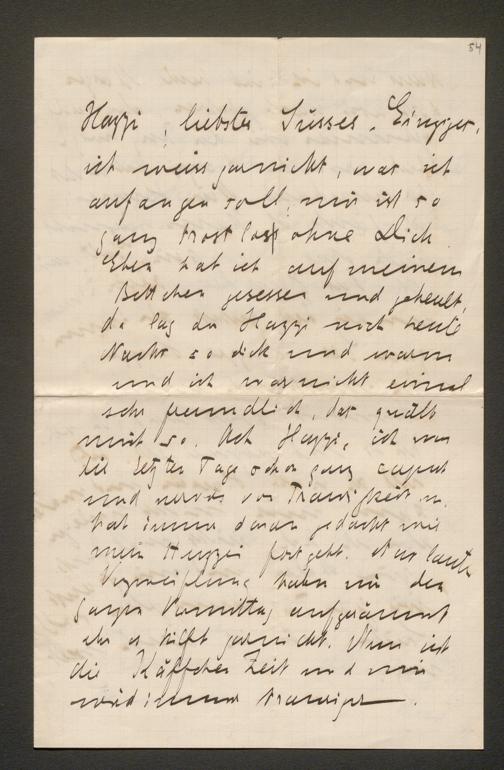 54
Hazzi, liebster Süsses, Einziger,
ich weiss garnicht, was ich
anfangen soll, mir ist so
ganz trostlos ohne Dich.
Eben hab ich auf meinem
Bettchen gesessen und geheult,
da lag der Hazzi noch heute
Nacht so dick und warm
und ich war nicht einmal
sehr freundlich, das quält
mich so. Ach Hazzi, ich war
die letzten Tage schon ganz caput
und nervös vor Traurigkeit u.
hab immer daran gedacht wie
mein Hazzi fortgeht. Aus lauter
Verzweiflung haben wir den
ganzen Vormittag aufgeräumt
aber es hilft garnicht. Nun ist
die Käffchen Zeit und mir
wird immer trauriger.